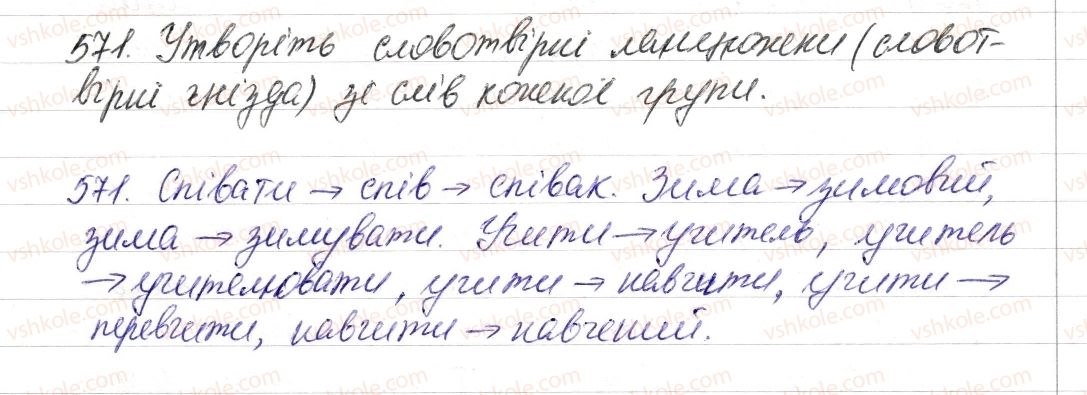 571. Утворіть словотвірні ланцюжени (словот-
вірні гнізда) зі слів кожної групи.
571. Співати → спів → співак. Зима → зимовий,
зима → зимувати. Учити → учитель, учитель
→ учителювати, учити → навчити, учити →
перевчити, навчити → навчений.